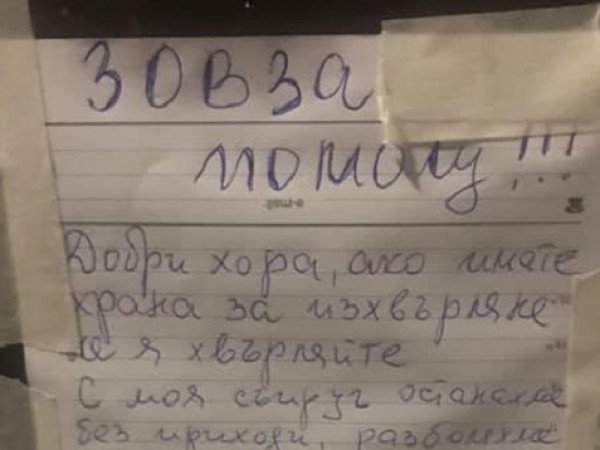 ЗОВ ЗА
помощ!!!
Добри хора, ако имате
храна за изхвърляне
не я хвърляйте
С моя съпруг останахме
без приходи, разболяхме